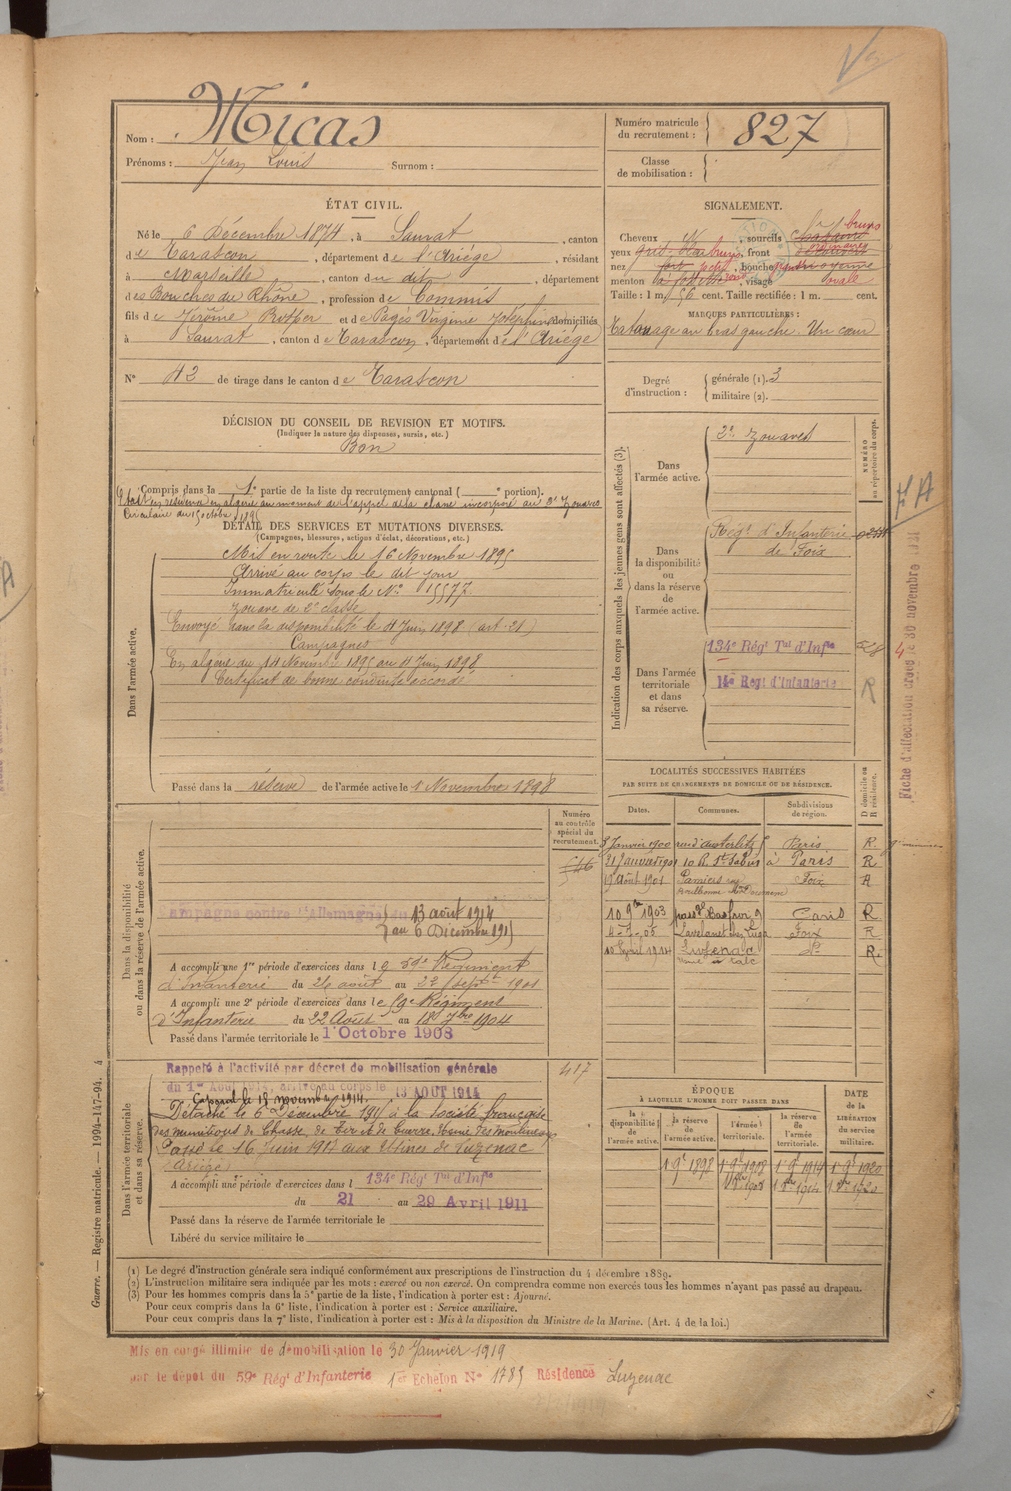 Nom : Micas
Prénoms : Jean Louis Surnom :
Numéro matricule du recrutement : 827
Classe de mobilisation :
ÉTAT CIVIL.
Né le 6 Décembre 1874, à Saurat, canton
de Tarascon, département de l'Ariège, résidant
à Marseille, canton du dit, département
des Bouches du Rhône, profession de Commis
fils de Jérôme Prosper et de Pagès Virginie Joséphine domiciliés
à Saurat, canton de Tarascon, département de l'Ariège
N° 42 de tirage dans le canton de Tarascon
SIGNALEMENT.
Cheveux sourcils bruns
yeux front ordinaires
nez bouche moyenne
menton rond, visage ovale
Taille : 1 m. 56 cent. Taille rectifiée : 1 m. cent.
MARQUES PARTICULIÈRES :
Tatouage au bras gauche. Un cœur
Degré d'instruction : générale (1). 3
militaire (2).
DÉCISION DU CONSEIL DE REVISION ET MOTIFS.
(Indiquer la nature des dispenses, sursis, etc.)
Bon
Compris dans la 1e partie de la liste du recrutement cantonal ( e portion).
Etait en résidence en Algérie au moment de l'appel de la classe incorporé au 2e Zouaves
Circulaire du 15 octobre 1895
DÉTAIL DES SERVICES ET MUTATIONS DIVERSES.
(Campagnes, blessures, actions d'éclat, décorations, etc.)
Dans l'armée active.
Mis en route le 16 Novembre 1895
Arrivé au corps le dit jour
Immatriculé sous le N° 15577
zouave de 2e classe
Envoyé dans la disponibilité le 4 Juin 1898 (art. 21)
Campagnes
En algérie du 14 Novembre 1895 au 4 Juin 1898
Certificat de bonne conduite accordé
Passé dans la réserve de l'armée active le 1 Novembre 1898
Indication des corps auxquels les jeunes gens sont affectés (3).
NUMÉRO au répertoire du corps.
Dans l'armée active. 2e Zouaves
Dans la disponibilité ou dans la réserve de l'armée active. Régt d'Infanterie de Foix
Dans l'armée territoriale et dans sa réserve. 134e Régt Tal d'Infie
14e Régt d'Infanterie
R
FA
Fiche d'affectation créée le 30 novembre 1921
LOCALITÉS SUCCESSIVES HABITÉES
PAR SUITE DE CHANGEMENTS DE DOMICILE OU DE RÉSIDENCE.
D domicile ou R résidence.
Dates. Communes. Subdivisions de région.
Janvier 1900 rue d'austerlitz Paris R.
21 janvier 1901 10 R. St Sabin à Paris R
19 août 1901 Pamiers Foix
10 9bre 1903 Paris R
Lavelanet Foix R
1914 Luzenac R.
Numéro au contrôle spécial du recrutement.
546
Dans la disponibilité ou dans la réserve de l'armée active.
Campagne contre l'Allemagne du 13 août 1914
au 6 Décembre 1915
A accompli une 1re période d'exercices dans le 59e Régiment
d'Infanterie du 26 août au 22 septe 1901
A accompli une 2e période d'exercices dans le 59e Régiment
d'Infanterie du 22 Août au 18 7bre 1904
Passé dans l'armée territoriale le 1 Octobre 1908
417
Dans l'armée territoriale et dans sa réserve.
Rappelé à l'activité par décret de mobilisation générale
du 1er Août 1914, arrivé au corps le 13 AOUT 1914
Caporal le 18 novembre 1914.
Détaché le 6 Décembre 1915 à la Société française
des munitions de Chasse, de Tir et de Guerre. Usine des moulineaux
Passé le 16 Juin 1917 aux Usines de Luzenac
(Ariège)
A accompli une période d'exercices dans l 134e Régt Tal d'Infie
du 21 au 29 Avril 1911
Passé dans la réserve de l'armée territoriale le
Libéré du service militaire le
ÉPOQUE
À LAQUELLE L'HOMME DOIT PASSER DANS
la disponibilité de l'armée active.
la réserve de l'armée active.
l'armée territoriale.
la réserve de l'armée territoriale.
DATE de la LIBÉRATION du service militaire.
1 9e 1898 1 9e 1908 1 9e 1914 1 9e 1920
(1) Le degré d'instruction générale sera indiqué conformément aux prescriptions de l'instruction du 4 décembre 1889.
(2) L'instruction militaire sera indiquée par les mots : exercé ou non exercé. On comprendra comme non exercés tous les hommes n'ayant pas passé au drapeau.
(3) Pour les hommes compris dans la 5e partie de la liste, l'indication à porter est : Ajourné.
Pour ceux compris dans la 6e liste, l'indication à porter est : Service auxiliaire.
Pour ceux compris dans la 7e liste, l'indication à porter est : Mis à la disposition du Ministre de la Marine. (Art. 4 de la loi.)
Guerre. — Registre matricule. — 1994-147-94. 4
Mis en congé illimité de démobilisation le 30 Janvier 1919
par le dépôt du 59e Régt d'Infanterie 1er Echelon N° 1785 Résidence Luzenac